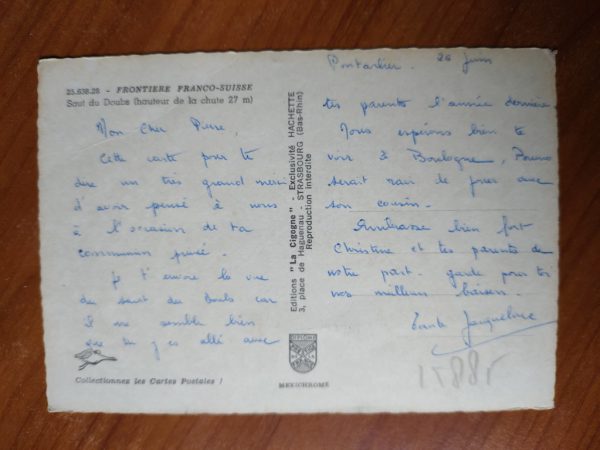 25.638.28 - FRONTIERE FRANCO-SUISSE
Saut du Doubs (hauteur de la chute 27 m)
Mon Cher Pierre,
Cette carte pour te
dire un très grand merci
d'avoir pensé à nous
à l'occasion de ta
communion privée.
Je t'envoie la vue
du saut du Doubs car
il me semble bien
que tu y es allé avec
Collectionnez les Cartes Postales !
Editions "La Cigogne" - Exclusivité HACHETTE
3, place de Haguenau - STRASBOURG (Bas-Rhin)
Reproduction interdite
DIPLOME
MEXICHROME
Pontarlier. 20 juin
tes parents l'année dernière
Nous espérons bien te
voir à Boulogne,
serait ravi de jouer avec
son cousin.
Embrasse bien fort
Christine et tes parents de
notre part. garde pour toi
nos meilleurs baisers.
Tante Jacqueline